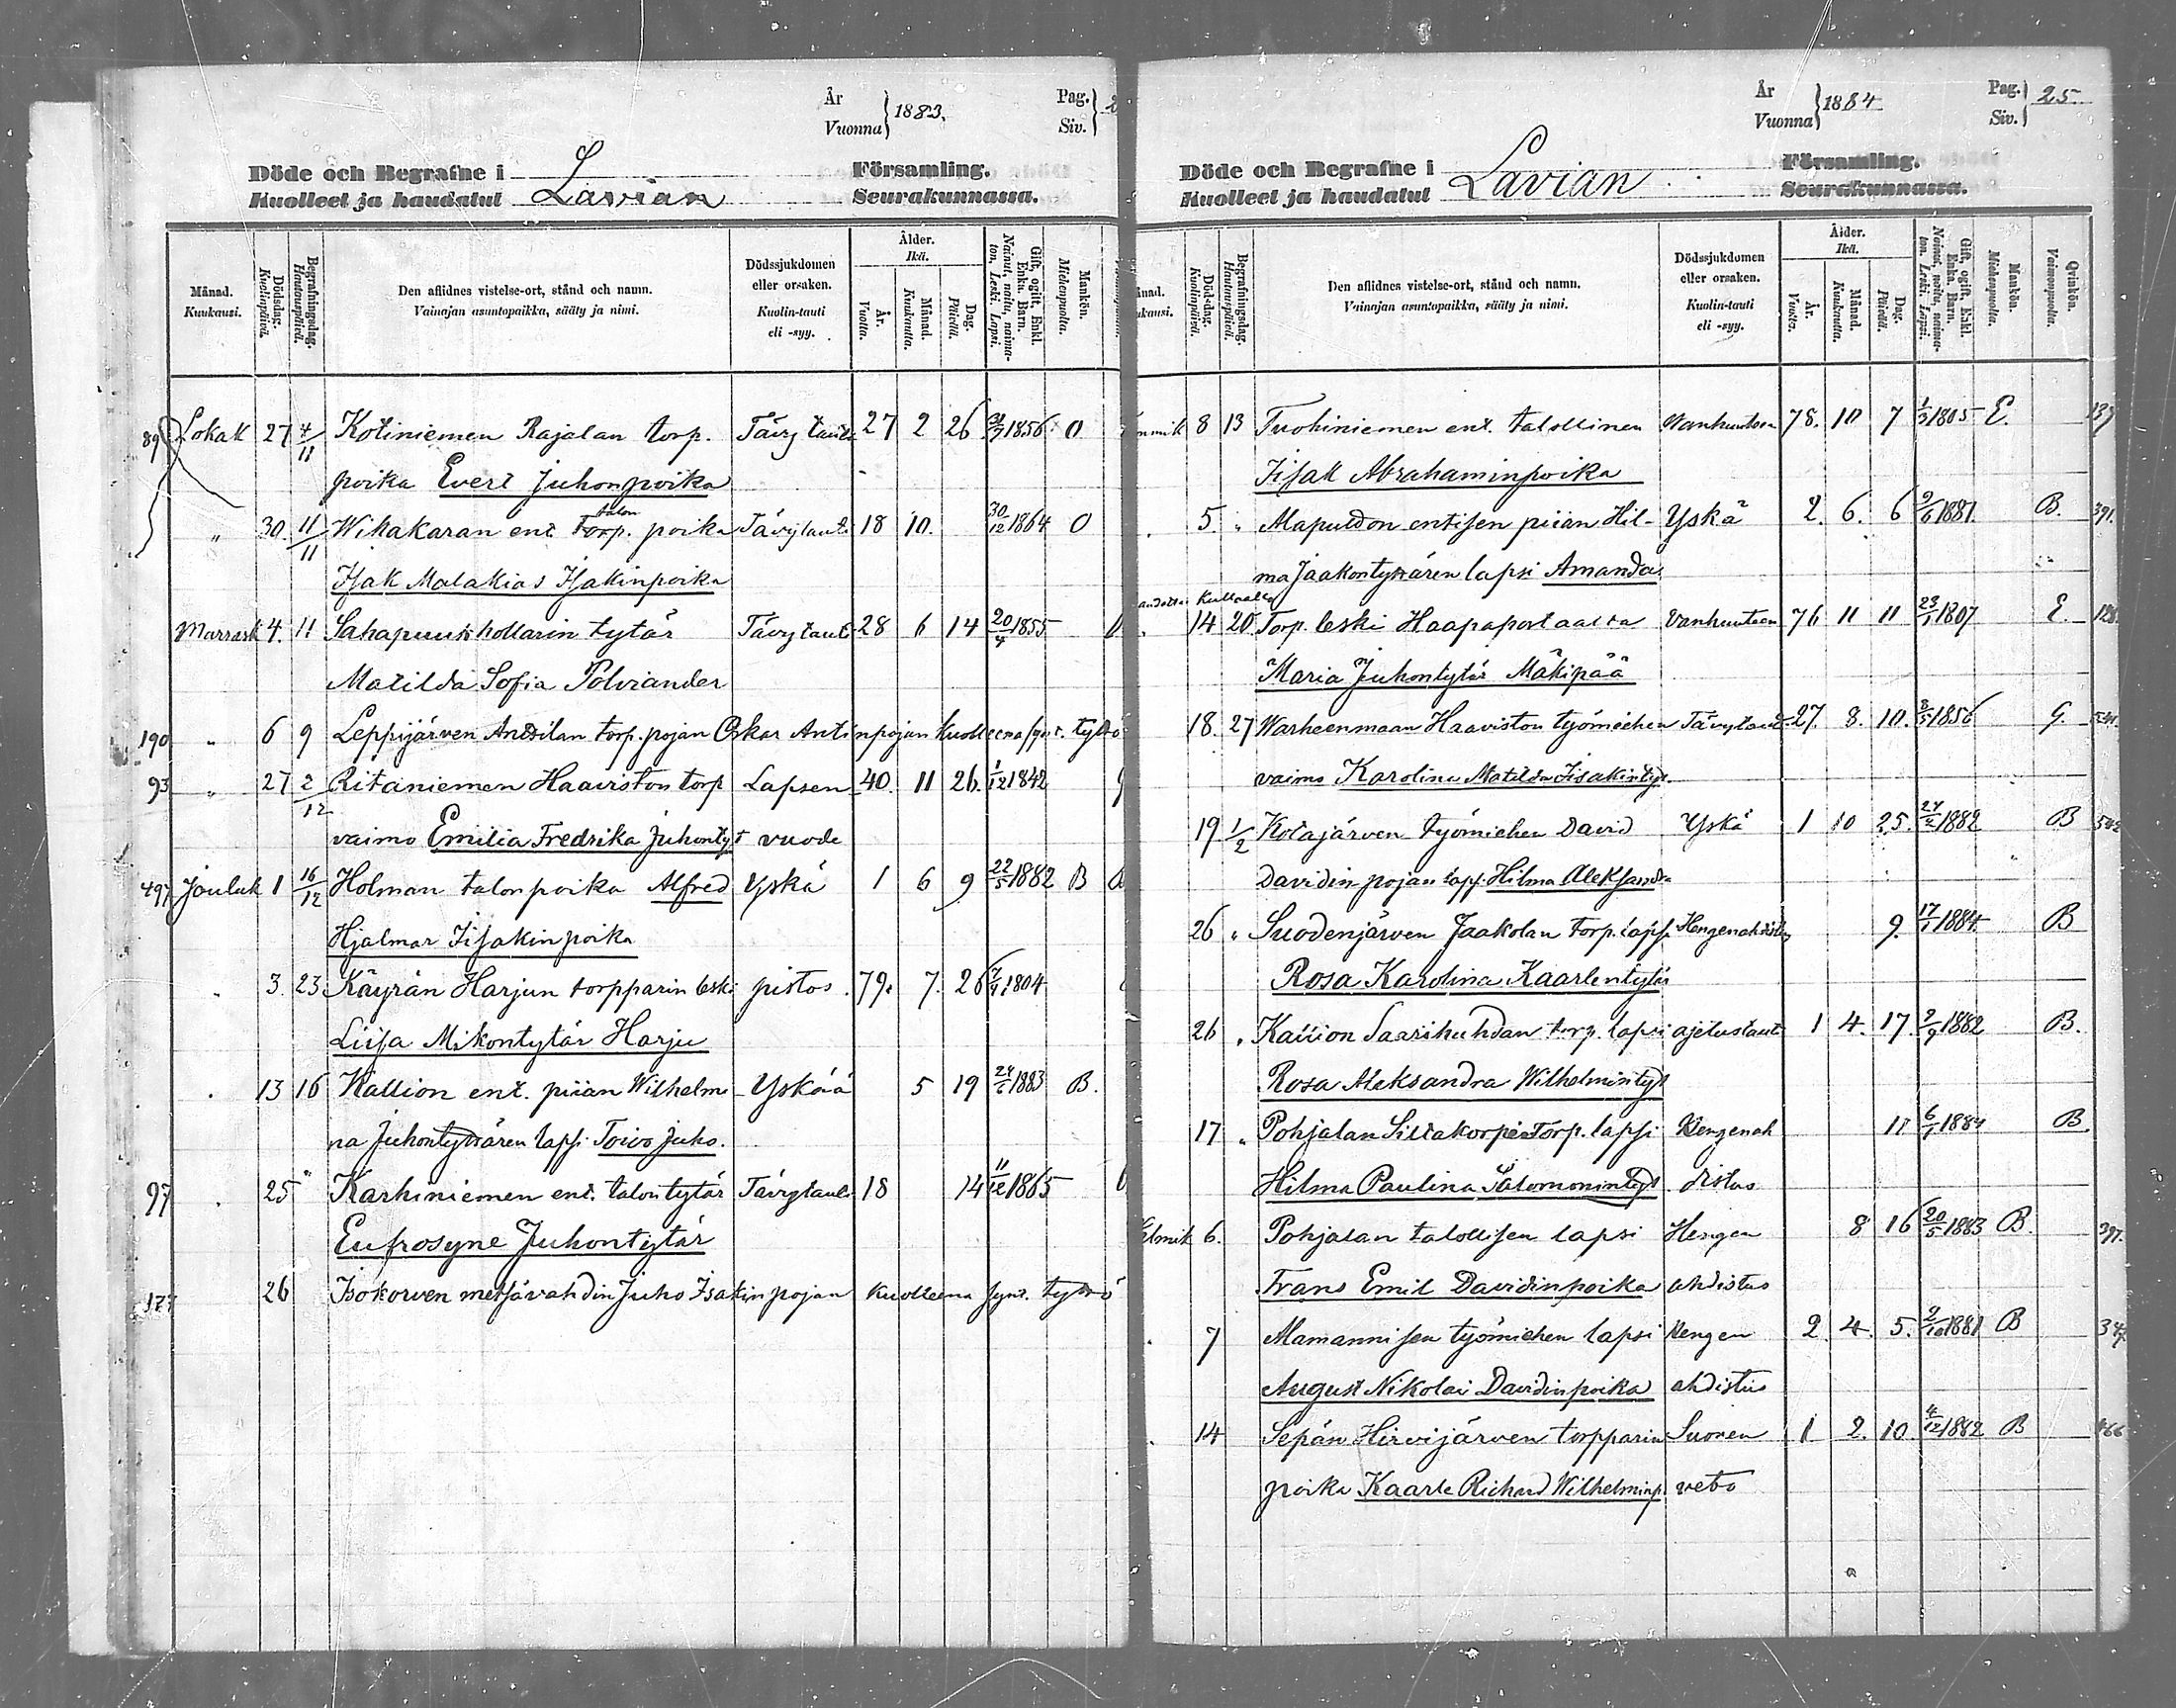 År Vuonna } 1883. Pag. Siv. } 2
Döde och Begrafne i Lavian Församling.
Kuolleet ja haudatut Seurakunnassa.
Månad. Kuukausi. Dödsdag. Kuolinpäivä. Begrafningsdag. Hautauspäivä. Den aflidnes vistelse-ort, stånd och namn. Vainajan asuntopaikka, sääty ja nimi. Dödssjukdomen eller orsaken. Kuolin-tauti eli -syy. Ålder. Ikä. År. Vuotta. Månad. Kuukautta. Dag. Päivää. Gift, ogift, Enkl. Enka. Barn. Nainut, naitu, naimaton, Leski. Lapsi. Mankön. Miehenpuolta.
89 Lokak 27 4/11 Kotiniemen Rajalan torp. Tävytauti 27 2 26 1856 O
poika Evert Juhonpoika
" 30. 11/11 Wihakaran ent. torp. talon poika Tävytauti 18 10. 30/12 1864 O
Isak Malakias Isakinpoika
Marrask 4. 11 Sahapuukhollarin tytär Tävytauti 28 6 14 20/4 1855
Matilda Sofia Polviander
190 " 6 9 Leppijärven Anttilan torp. pojan Oskar Antinpojan kuolleena synt. tyttö
93 " 27 2/12 Ritaniemen Haaviston torp Lapsen 40. 11 26. 1/12 1842 G
vaimo Emilia Fredrika Juhontyt vuode
497 Jouluk 1 16/12 Holman talon poika Alfred Yskä 1 6 9 22/5 1882 B
Hjalmar Iisakinpoika
3. 23 Käyrän Harjun torpparin leski pistos. 79. 7. 26 1804
Liisa Mikontytär Harju
13 16 Kallion ent. piian Wilhelmi- Yskää 5 19 24/6 1883 B.
na Juhontyttären lapsi Toivo Juho.
97 25 " Karhiniemen ent. talon tytär Tävytauti 18 14 11/12 1865
Eufrosyne Juhontytär
177 26 Isokorven metsävahdin Juho Isakinpojan kuolleena synt. tyttö
År Vuonna } 1884 Pag. Siv. } 25
Döde och Begrafne i Lavian Församling.
Kuolleet ja haudatut Seurakunnassa.
Dödsdag. Kuolinpäivä. Begrafningsdag. Hautauspäivä. Den aflidnes vistelse-ort, stånd och namn. Vainajan asuntopaikka, sääty ja nimi. Dödssjukdomen eller orsaken. Kuolin-tauti eli -syy. Ålder. Ikä. År. Vuotta. Månad. Kuukautta. Dag. Päivää. Gift, ogift, Enkl. Enka. Barn. Nainut, naitu, naimaton. Leski. Lapsi. Mankön. Miehenpuolta. Qvinkön. Vaimonpuolta.
mik 8 13 Tuohiniemen ent. talollinen Wanhuuteen 78. 10 7 1/3 1805 E. 137
Iisak Abrahaminpoika
5. " Alapuldon entisen piian Hil- Yskä 2. 6. 6 1881 B. 391.
ma Jaakontyttären lapsi Amanda
Kullaalla
14 20 Torp. leski Haapaportaalta Vanhuuteen 76 11 11 23/1 1807 E.
Maria Juhontytär Mäkipää
18. 27 Warheenmaan Haaviston työmiehen Tävytauti 27. 8. 10. 8/5 1856 G.
vaimo Karolina Matilda Iisakintyt.
19 1/2 Kotajärven työmiehen David Yskä 1 10 25. 24/2 1882 B 542
Davidinpojan laps. Hilma Aleksandra
26 " Suodenjärven Jaakolan torp. lapsi Hengenahdistus 9. 17/1 1884 B
Rosa Karolina Kaarlentytär
26 " Kallion Saarihuhdan torp. lapsi ajetustauti 1 4. 17. 2/9 1882 B.
Rosa Aleksandra Wilhelmintyt
17 " Pohjalan Siltakorpe Torp. lapsi Hengenah 11 6/1 1884 B.
Hilma Paulina Salomonintyt. distus
Helmik 6. Pohjalan talollisen lapsi Hengen 8 16 20/5 1883 B. 397.
Frans Emil Davidinpoika ahdistus
7 Mamannisen työmiehen lapsi Hengen 2 4. 5. 2/10 1881 B
August Nikolai Davidinpoika ahdistus
14 Sepän Hirvijärven torpparin Suonen 1 2. 10. 4/12 1882 B 466
poika Kaarle Richard Wilhelminp. veto